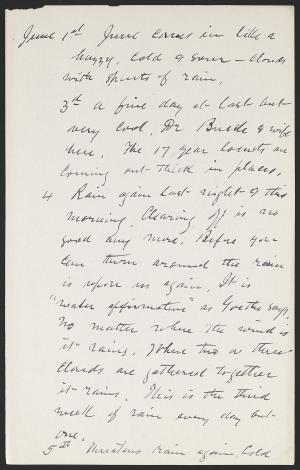 June 1st June comes in like a
huzzy, cold & sour – clouds
with spurts of rain.
3d A fine day at last but
very cool. Dr & wife
here. The 17 year locusts are
coming out thick in places.
4 Rain again last night & this
morning. Clearing off is no
good any more. Before you
can turn around the rain
is upon us again. It is
"water affirmative" as Goethe says.
No matter where the wind is
it rains. Where two or three
clouds are gathered together
it rains. This is the third
week of rain every day but
one.
5th rain again. Cold